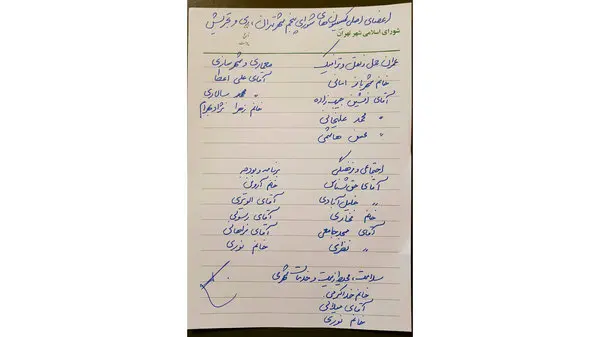 اعضای اصلی کمیسیون‌های شورای پنجم شهر تهران، ری و تجریش
شورای اسلامی شهر تهران
عمران حمل و نقل و ترافیک
خانم شهربانو امانی
آقای افشین حبیب زاده
〃 محمد علیخانی
〃 محسن هاشمی
معماری و شهرسازی
آقای علی اعطا
〃 محمد سالاری
خانم زهرا نژادبهرام
اجتماعی و فرهنگی
آقای حق شناس
〃 خلیل آبادی
خانم فخاری
آقای مسجدجامعی
〃 نظری
برنامه و بودجه
خانم آروین
آقای الویری
آقای رسولی
آقای فراهانی
خانم نوری
سلامت، محیط زیست و خدمات شهری
خانم خداکرمی
آقای میلانی
خانم نوری